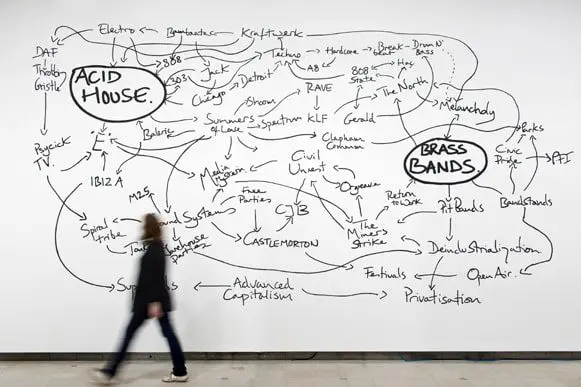 Electro
Bambaataa
Kraftwerk
DAF
Throbbing
Gristle
808
303
Jack
Techno
Hardcore
Break-
beat
Drum N'
Bass
A8
808
State
Hac
ACID
HOUSE.
Chicago
Detroit
Shoom
RAVE
The North
Melancholy
Balearic
Summers
of Love
Spectrum
KLF
Gerald
Clapham
Common
Psychick
TV.
E
IBIZA
Media
Hysteria
Civil
Unrest
BRASS
BANDS.
Parks
Civic
Pride
PFI
M25
Free
Parties
CJB
Orgreave
Return
to Work
Pit Bands
Bandstands
Spiral
Tribe
Sound Systems
Warehouse
Parties
CASTLEMORTON
The
Miners
Strike
Deindustrialization
Festivals
Open Air.
Sup
Advanced
Capitalism
Privatisation